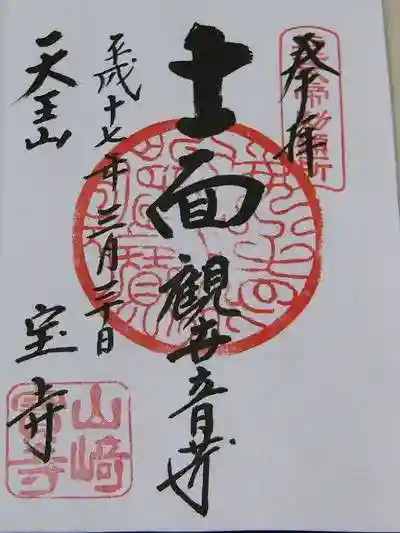 奉拝
十一面観世音菩薩
平成十七年三月三十日
天王山
宝寺
山崎
寳寺